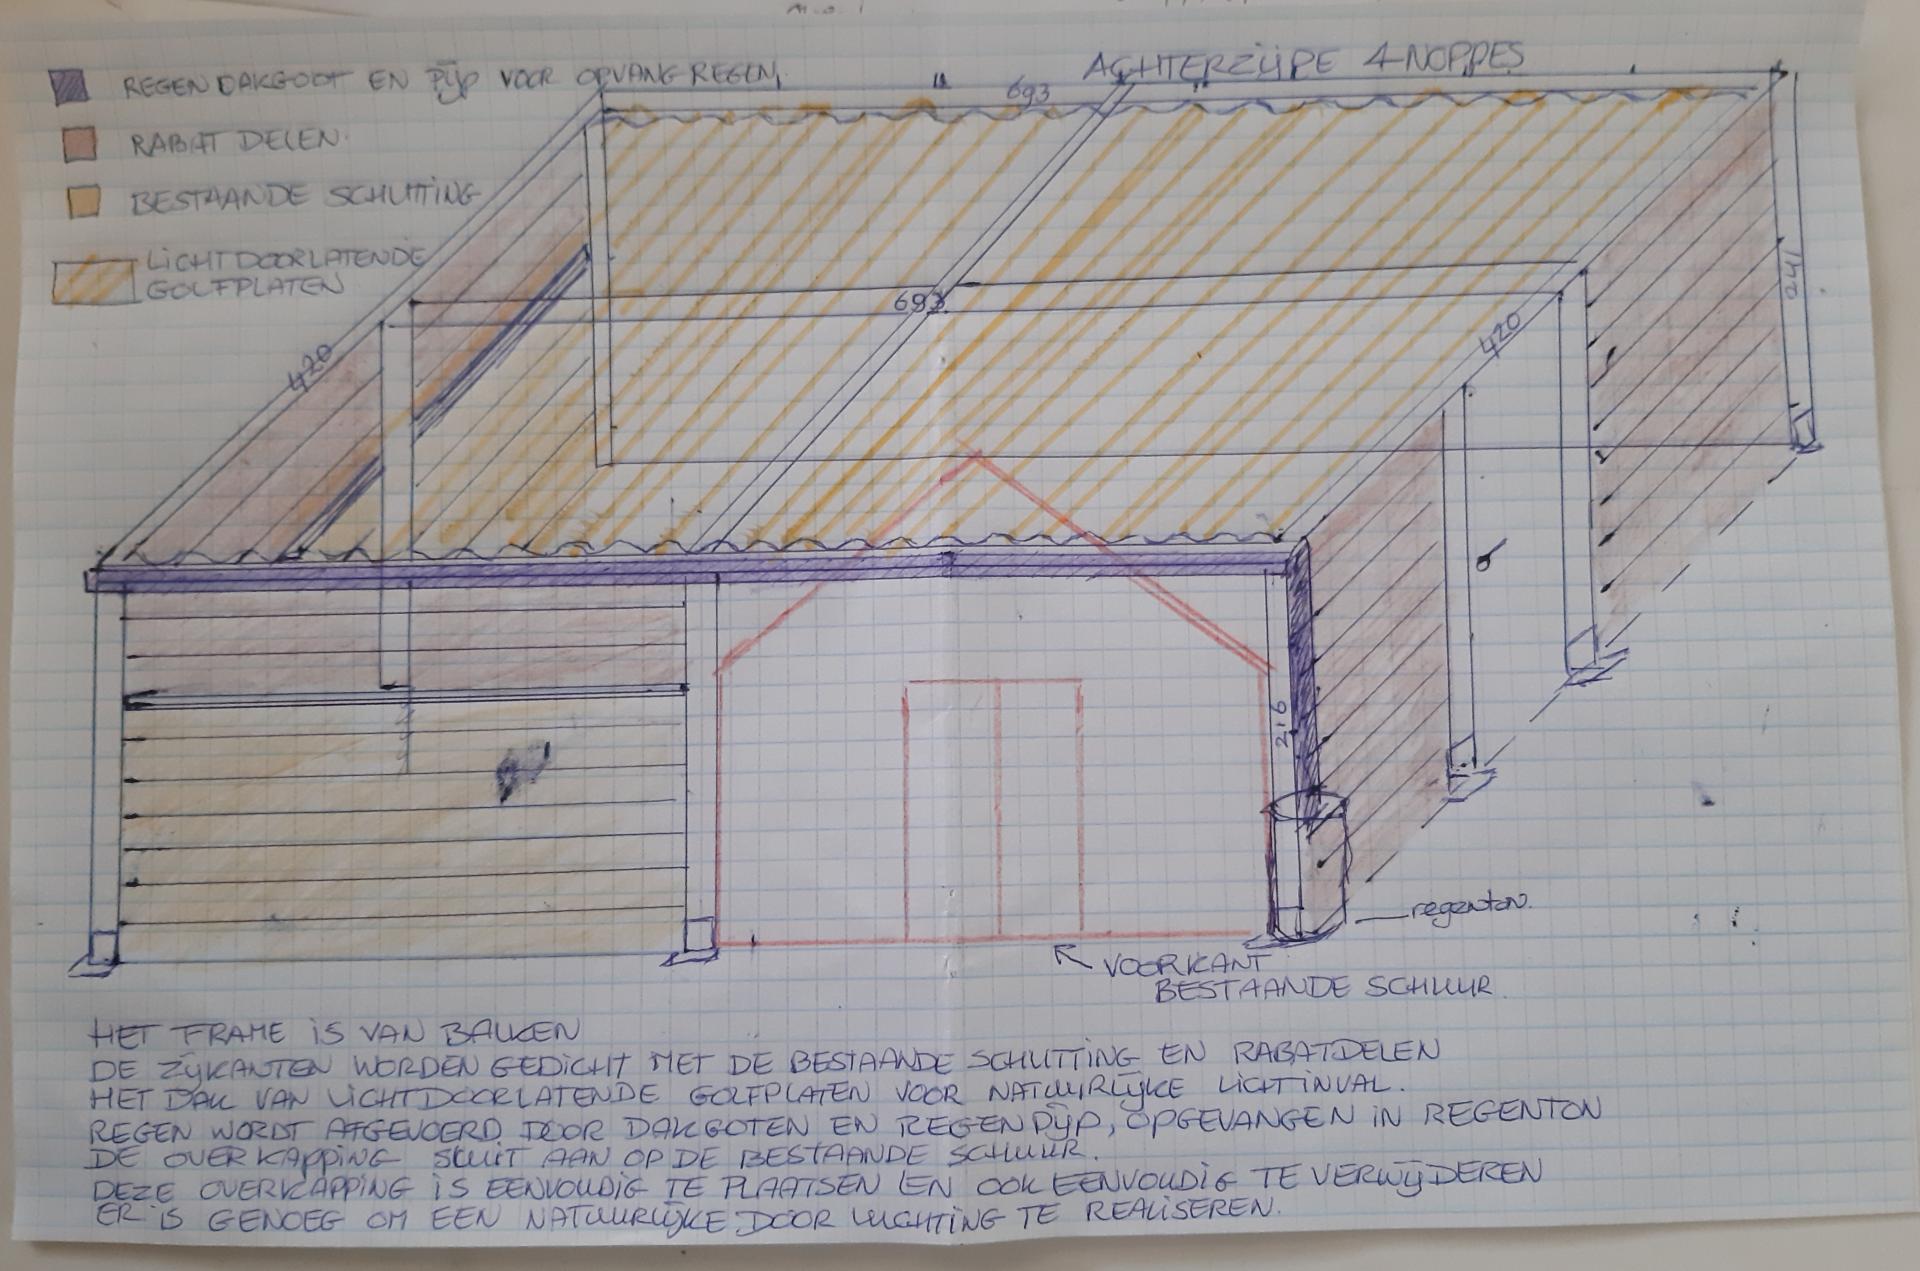 REGEN DAKGOOT EN PIJP VOOR OPVANG REGEN
RABAT DELEN
BESTAANDE SCHUTTING
LICHTDOORLATENDE
GOLFPLATEN
ACHTERZIJDE 4-NOPPES
693
693
420
420
241
216
regenton
VOORKANT
BESTAANDE SCHUUR
HET FRAME IS VAN BALKEN
DE ZIJKANTEN WORDEN GEDICHT MET DE BESTAANDE SCHUTTING EN RABATDELEN
HET DAK VAN LICHTDOORLATENDE GOLFPLATEN VOOR NATUURLIJKE LICHTINVAL.
REGEN WORDT AFGEVOERD DOOR DAKGOTEN EN REGENPIJP, OPGEVANGEN IN REGENTON
DE OVERKAPPING SLUIT AAN OP DE BESTAANDE SCHUUR.
DEZE OVERKAPPING IS EENVOUDIG TE PLAATSEN EN OOK EENVOUDIG TE VERWIJDEREN
ER IS GENOEG OM EEN NATUURLIJKE DOORLUCHTING TE REALISEREN.